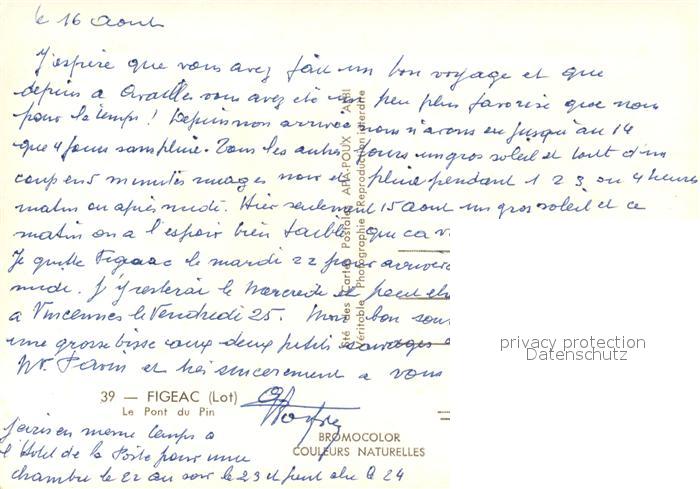 le 16 Aout
J'espère que vous avez fait un bon voyage et que
depuis a Availles vous avez été un peu plus favorisé que nous
pour le temps ! Depuis nos arrivée nous n'avons eu jusqu'au 14
que 4 jours sans pluie. Tous les autres jours un gros soleil et tout d'un
coup en 5 minutes nuages noir et pluie pendant 1 2 3 ou 4 heures
matin ou après midi. Hier seulement 15 aout un gros soleil et ce
matin on a l'espoir bien faible que ca
Je quitte Figeac le mardi 22 pour
midi. J'y resterai le Mercredi et peut
a Vincennes le Vendredi 25. Mon bon
une grosse bise aux deux petits sauvages
Mr. et très sincerement a vous
39 — FIGEAC (Lot)
Le Pont du Pin
J'ecris en meme temps a
l'Hotel de la Poste pour une
chambre le 22 au soir le 23 et peut etre le 24
BROMOCOLOR
COULEURS NATURELLES
Sté des Cartes Postales APA-POUX - ALBI
Véritable Photographie Reproduction interdite
privacy protection
Datenschutz